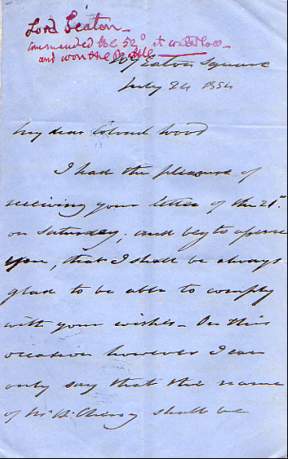 Lord Seaton
commanded the 52d at Waterloo
and won the Battle
Eaton Square
July 24 1854
My dear Colonel Wood
I had the pleasure of
receiving your letter of the 21st.
on Saturday, and beg to assure
you, that I shall be always
glad to be able to comply
with your wishes_ On this
occasion however I can
only say that the name
of Mr shall be